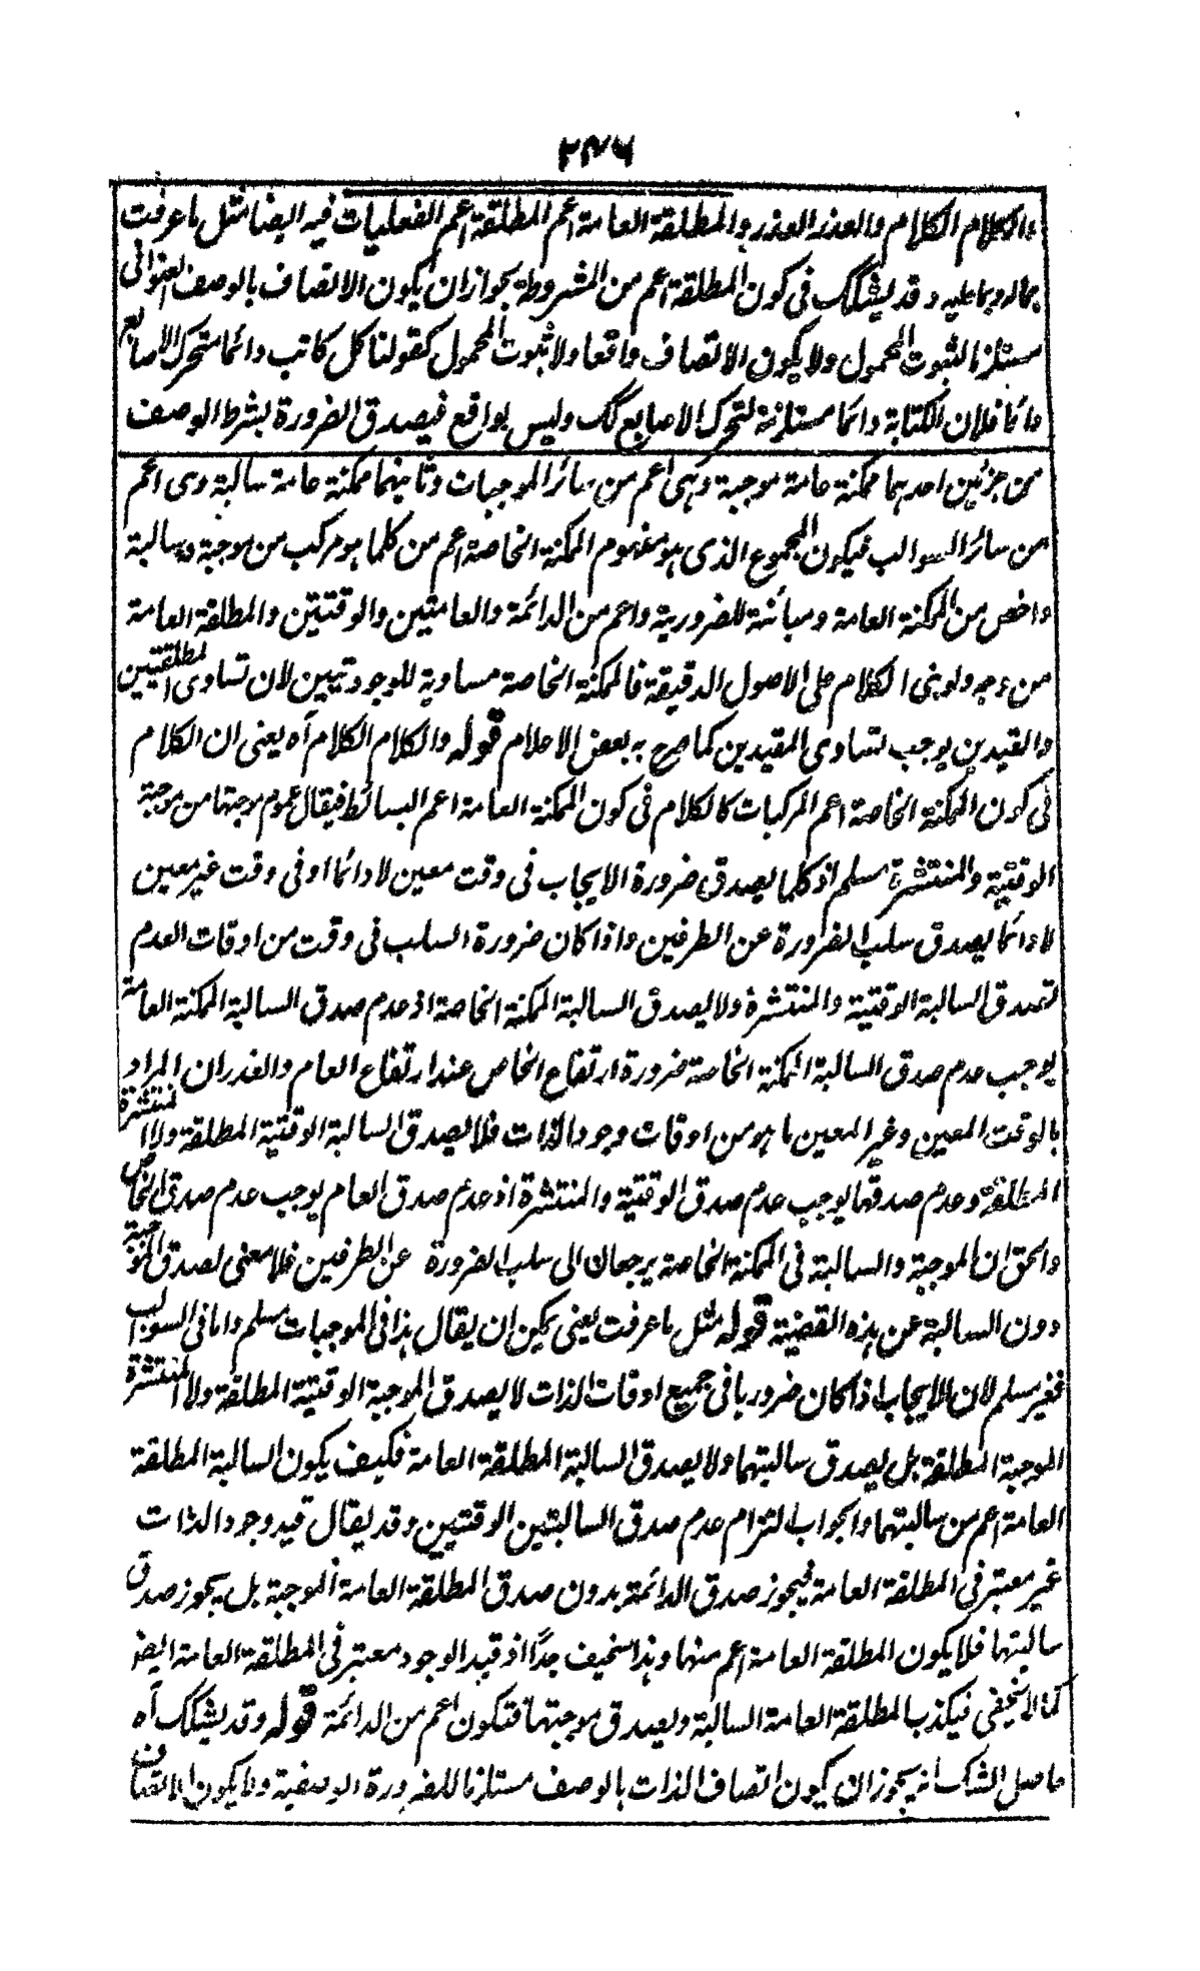 ٢٣٦
والكلام الكلام والعذر العذر والمطلقة العامة اعم المطلقة اعم الفعليات فيه ايضا مثل ما عرفت
بماله وبما عليه وقد يشكك فى كون المطلقة اعم من المشروطة بجوازان يكون الاتصاف بالوصف العنوانى
مستلزما لثبوت المحمول ولا يكون الاتصاف واقعا ولا ثبوت المحمول كقولنا كل كاتب دائما متحرك الاصابع
دائما فلان الكتابة دائما مستلزمة لتحرك الاصابع كك وليس بواقع فيصدق الضرورة بشرط الوصف
من جزئين احدهما ممكنة عامة موجبة وهى اعم من سائر الموجبات وثانيهما ممكنة عامة سالبة وهى اعم
من سائر السوالب فيكون المجموع الذى هو مفهوم الممكنة الخاصة اعم من كلما هو مركب من موجبة وسالبة
واخص من الممكنة العامة ومبائنة للضرورية واعم من الدائمة والعامتين والوقتيتين والمطلقة العامة
من وجه ولو بنى الكلام على الاصول الدقيقة فالممكنة الخاصة مساوية للوجوديتين لان تساوى المطلقتين
والقيدين يوجب تساوى المقيدين كما صرح به بعض الاعلام قوله والكلام الكلام آه يعنى ان الكلام
فى كون الممكنة الخاصة اعم المركبات كالكلام فى كون الممكنة العامة اعم البسائط فيقال عموم موجبتها من موجبة
الوقتية والمنتشرة مسلم اذ كلما يصدق ضرورة الايجاب فى وقت معين لا دائما او فى وقت غير معين
لا دائما يصدق سلب الضرورة عن الطرفين واذا كان ضرورة السلب فى وقت من اوقات العدم
تصدق السالبة الوقتية والمنتشرة ولا يصدق السالبة الممكنة الخاصة اذ عدم صدق السالبة الممكنة العامة
يوجب عدم صدق السالبة الممكنة الخاصة ضرورة ارتفاع الخاص عند ارتفاع العام والعذر ان المراد
بالوقت المعين وغير المعين ما هو من اوقات وجود الذات فلا يصدق السالبة الوقتية المطلقة ولا المنتشرة
المطلقة وعدم صدقهما يوجب عدم صدق الوقتية والمنتشرة اذ عدم صدق العام يوجب عدم صدق الخاص
والحق ان الموجبة والسالبة فى الممكنة الخاصة يرجعان الى سلب الضرورة عن الطرفين فلا معنى لصدق الموجبة
دون السالبة عن هذه القضية قوله مثل ما عرفت يعنى يمكن ان يقال هذا فى الموجبات مسلم واما فى السوالب
فغير مسلم لان الايجاب اذا كان ضروريا فى جميع اوقات الذات لا يصدق الموجبة الوقتية المطلقة ولا المنتشرة
الموجبة المطلقة بل يصدق سالبتهما ولا يصدق السالبة المطلقة العامة فكيف يكون السالبة المطلقة
العامة اعم من سالبتهما والجواب التزام عدم صدق السالبتين الوقتيين وقد يقال قيد وجود الذات
غير معتبر فى المطلقة العامة فيجوز صدق الدائمة بدون صدق المطلقة العامة الموجبة بل يجوز صدق
سالبتها فلا يكون المطلقة العامة اعم منها وهذا سخيف جدًا اذ قيد الوجود معتبر فى المطلقة العامة ايضا
كما لا يخفى فيكذب المطلقة العامة السالبة ويصدق موجبتها فتكون اعم من الدائمة قوله وقد يشكك آه
حاصل الشك انه يجوز ان يكون اتصاف الذات بالوصف مستلزما للضرورة الوصفية ولا يكون الاتصاف